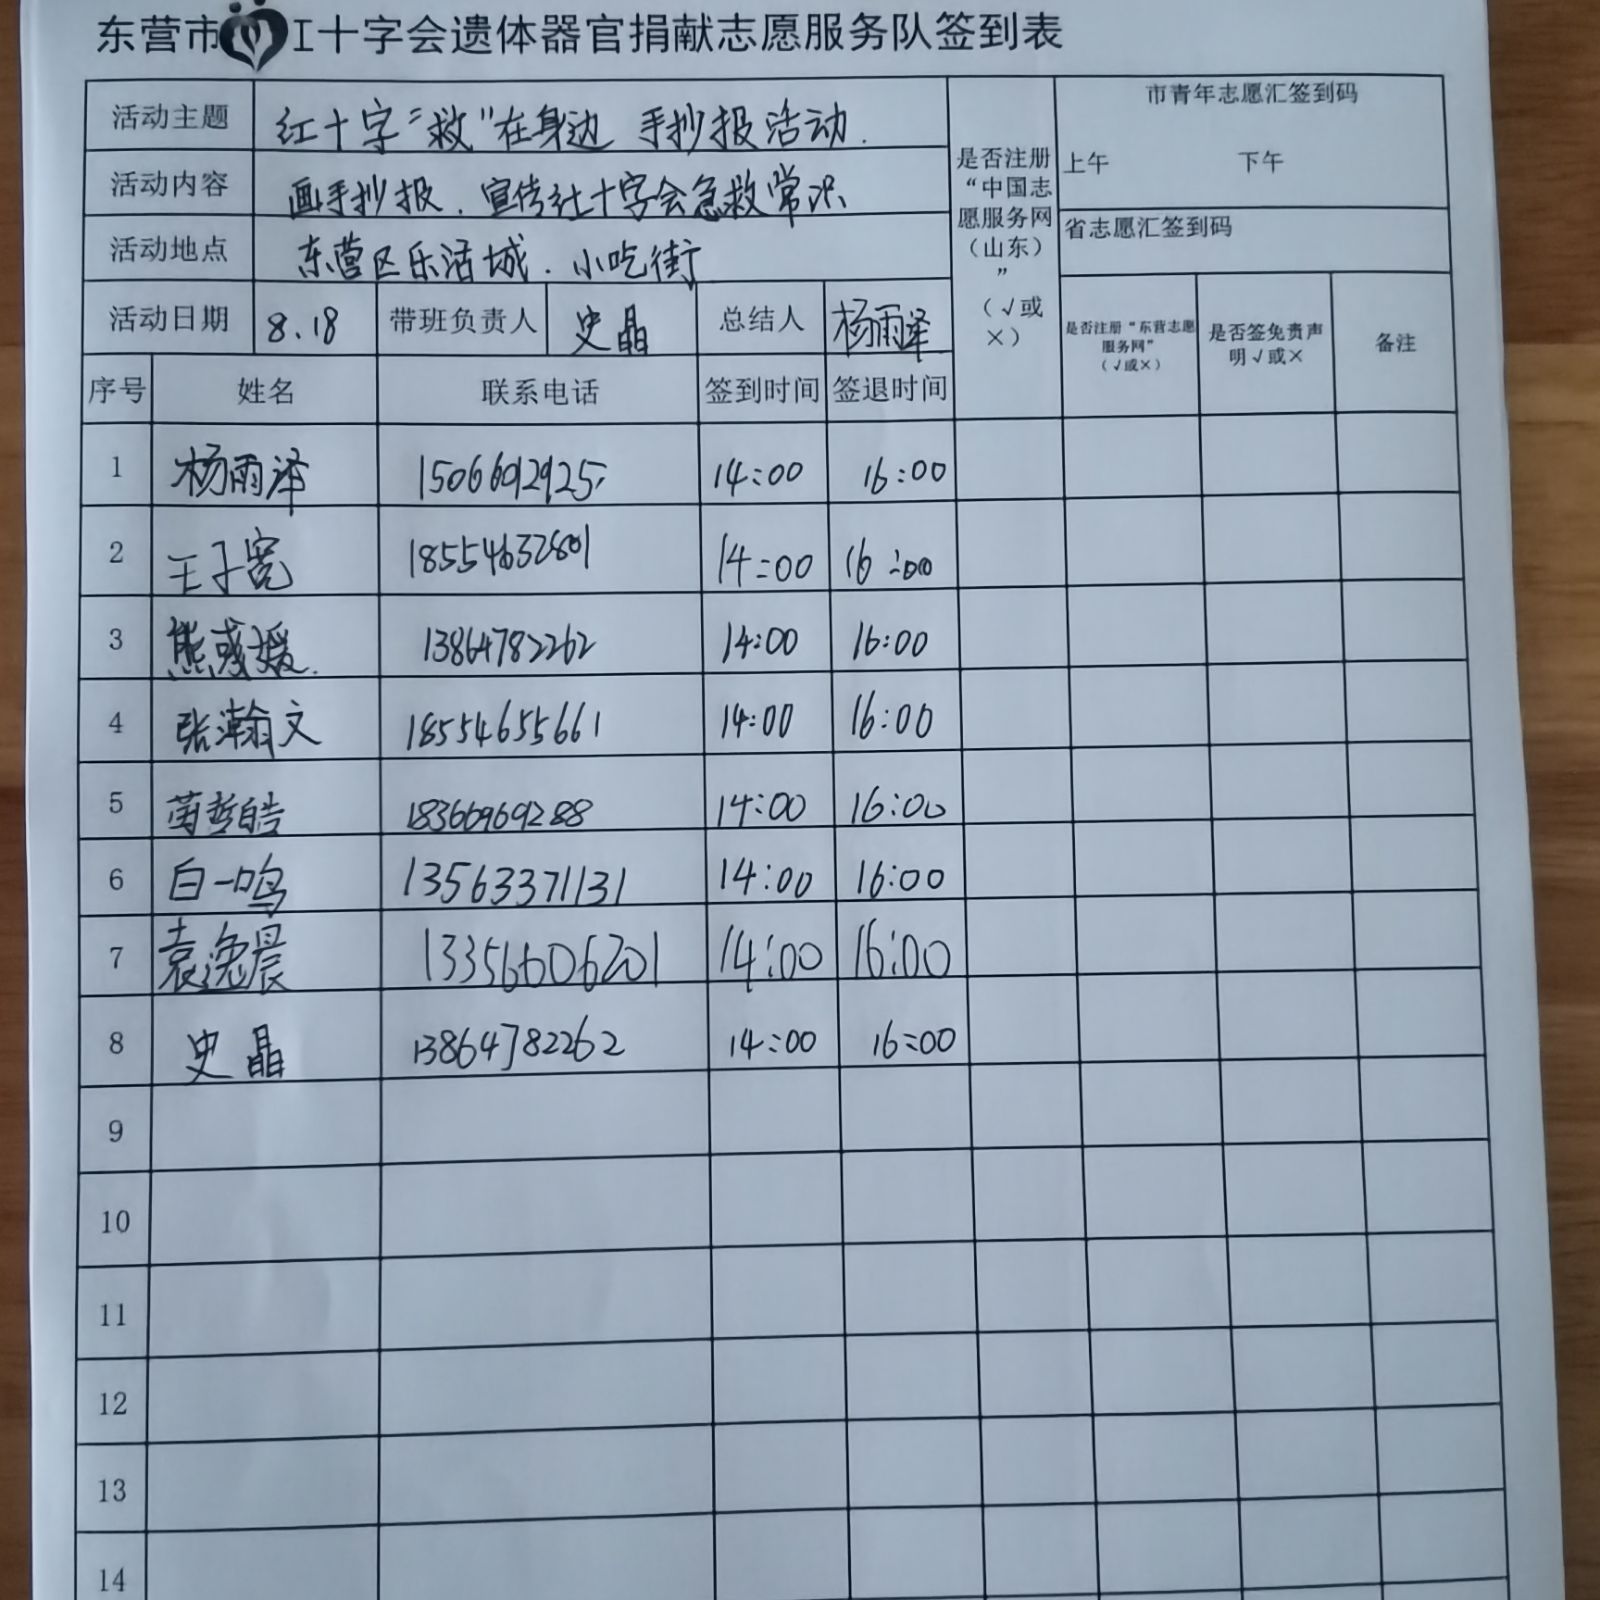 东营市 工十字会遗体器官捐献志愿服务队签到表
活动主题 红十字“救”在身边 手抄报活动. 是否注册“中国志愿服务网（山东）”（√或×） 市青年志愿汇签到码
上午 下午
活动内容 画手抄报.宣传红十字会急救常识
省志愿汇签到码
活动地点 东营区乐活城.小吃街
活动日期 8.18 带班负责人 史晶 总结人 杨雨泽 是否注册“东营志愿服务网”（√或×） 是否签免责声明√或× 备注
序号 姓名 联系电话 签到时间 签退时间
1 杨雨泽 14:00 16:00
2 王子宽 18554632801 14:00 16:00
3 熊彧媛. 13864782262 14:00 16:00
4 张瀚文 18554655661 14:00 16:00
5 哲皓 18366969288 14:00 16:00
6 白一鸣 13563371131 14:00 16:00
7 袁逸晨 13356606201 14:00 16:00
8 史晶 13864782262 14:00 16:00
9
10
11
12
13
14